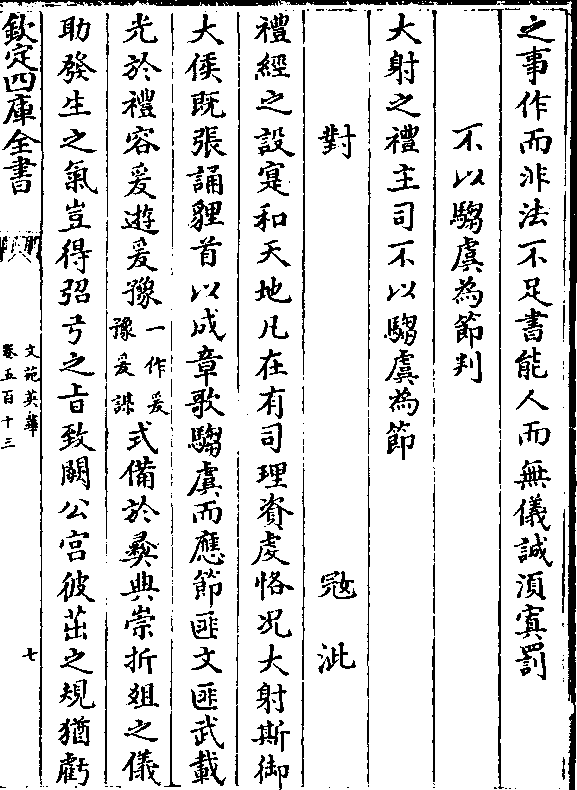 之事作而非法不足書能人而無儀誠須寘罰
不以騶虞為節判
大射之禮主司不以騶虞為節
對 宼泚
禮經之設寔和天地凡在有司理資虔恪况大射斯御
大侯既張誦貍首以成章歌騶虞而應節匪文匪武載
光於禮容爰遊爰豫一作爰豫爰課式備於彛典崇折俎之儀
助發生之氣豈得弨弓之㫖致闕公宫彼茁之規猶虧
欽定四庫全書
文苑英華
卷五百十三
七